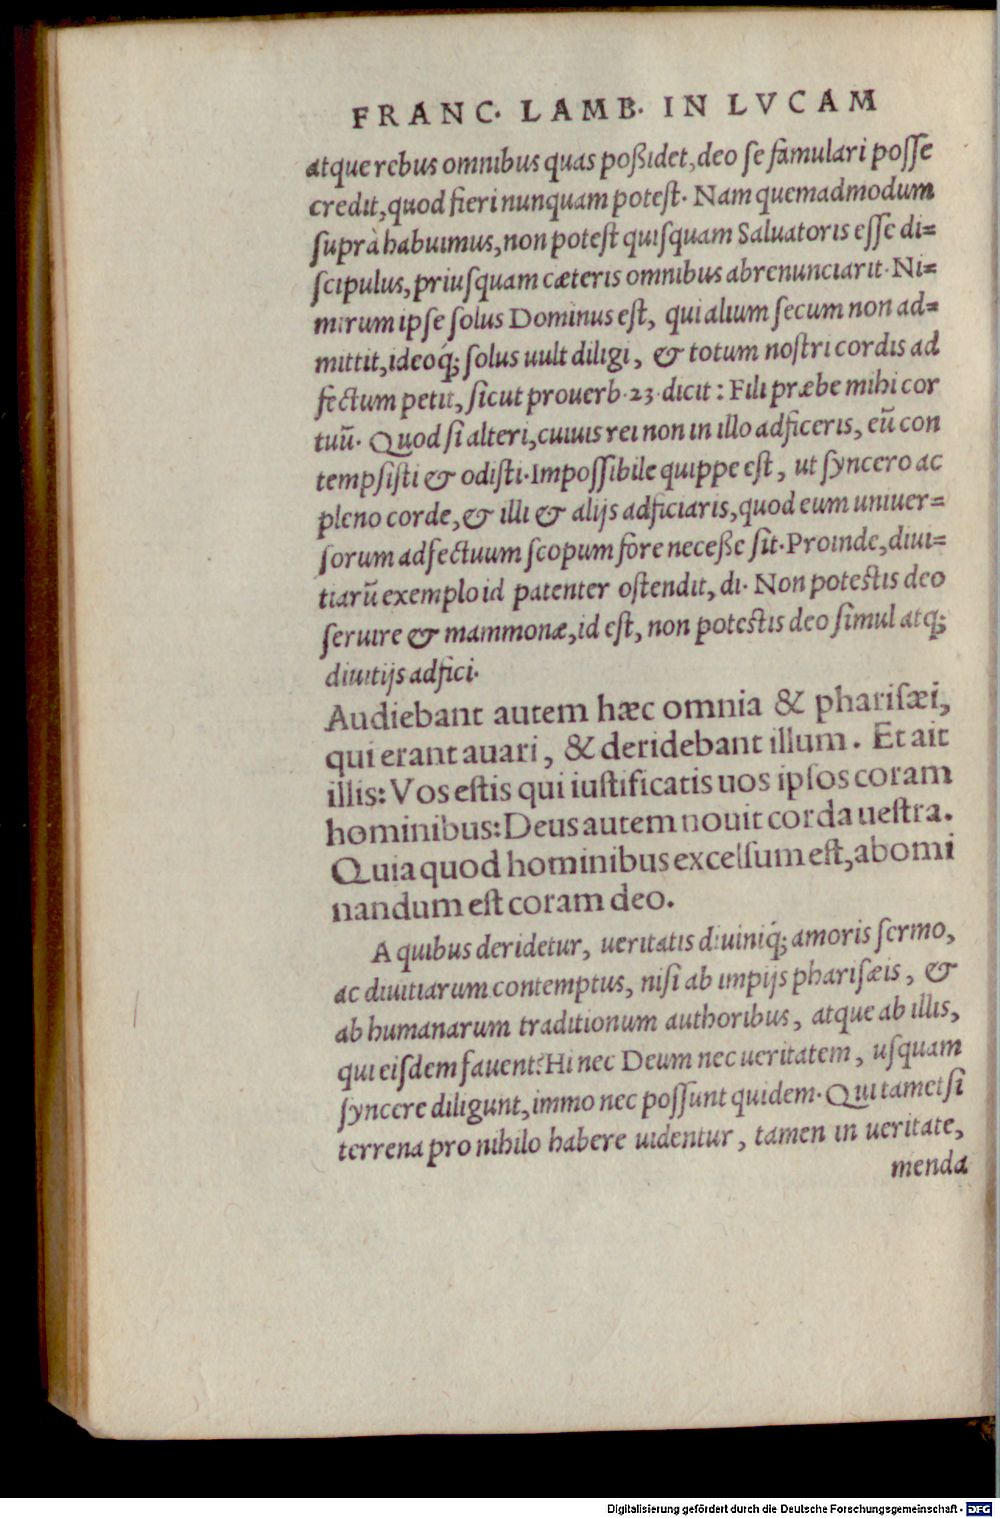 FRANC. LAMB. IN LVCAM
atque rebus omnibus quas poßidet, deo se famulari posse
credit, quod fieri nunquam potest. Nam quemadmodum
suprà habuimus, non potest quisquam Saluatoris esse di=
scipulus, priusquam cæteris omnibus abrenunciarit. Ni=
mirum ipse solus Dominus est, qui alium secum non ad=
mittit, ideoq́; solus uult diligi, & totum nostri cordis ad
fectum petit, sicut prouerb. 23. dicit: Fili præbe mihi cor
tuū. Quod si alteri, cuiuis rei non in illo adficeris, eū con
tempsisti & odisti. Impossibile quippe est, ut syncero ac
pleno corde, & illi & alijs adficiaris, quod eum uniuer=
sorum adfectuum scopum fore neceße sit. Proinde, diui=
tiarū exemplo id patenter ostendit, di. Non potestis deo
seruire & mammonæ, id est, non potestis deo simul atq;
diuitijs adfici.
Audiebant autem hæc omnia & pharisæi,
qui erant auari, & deridebant illum. Et ait
illis: Vos estis qui iustificatis uos ipsos coram
hominibus: Deus autem nouit corda uestra.
Quia quod hominibus excelsum est, abomi
nandum est coram deo.
A quibus deridetur, ueritatis diuiniq́; amoris sermo,
ac diuitiarum contemptus, nisi ab impijs pharisæis, &
ab humanarum traditionum authoribus, atque ab illis,
qui eisdem fauent? Hi nec Deum nec ueritatem, usquam
syncere diligunt, immo nec possunt quidem. Qui tametsi
terrena pro nihilo habere uidentur, tamen in ueritate,
menda
Digitalisierung gefördert durch die Deutsche Forschungsgemeinschaft - DFG